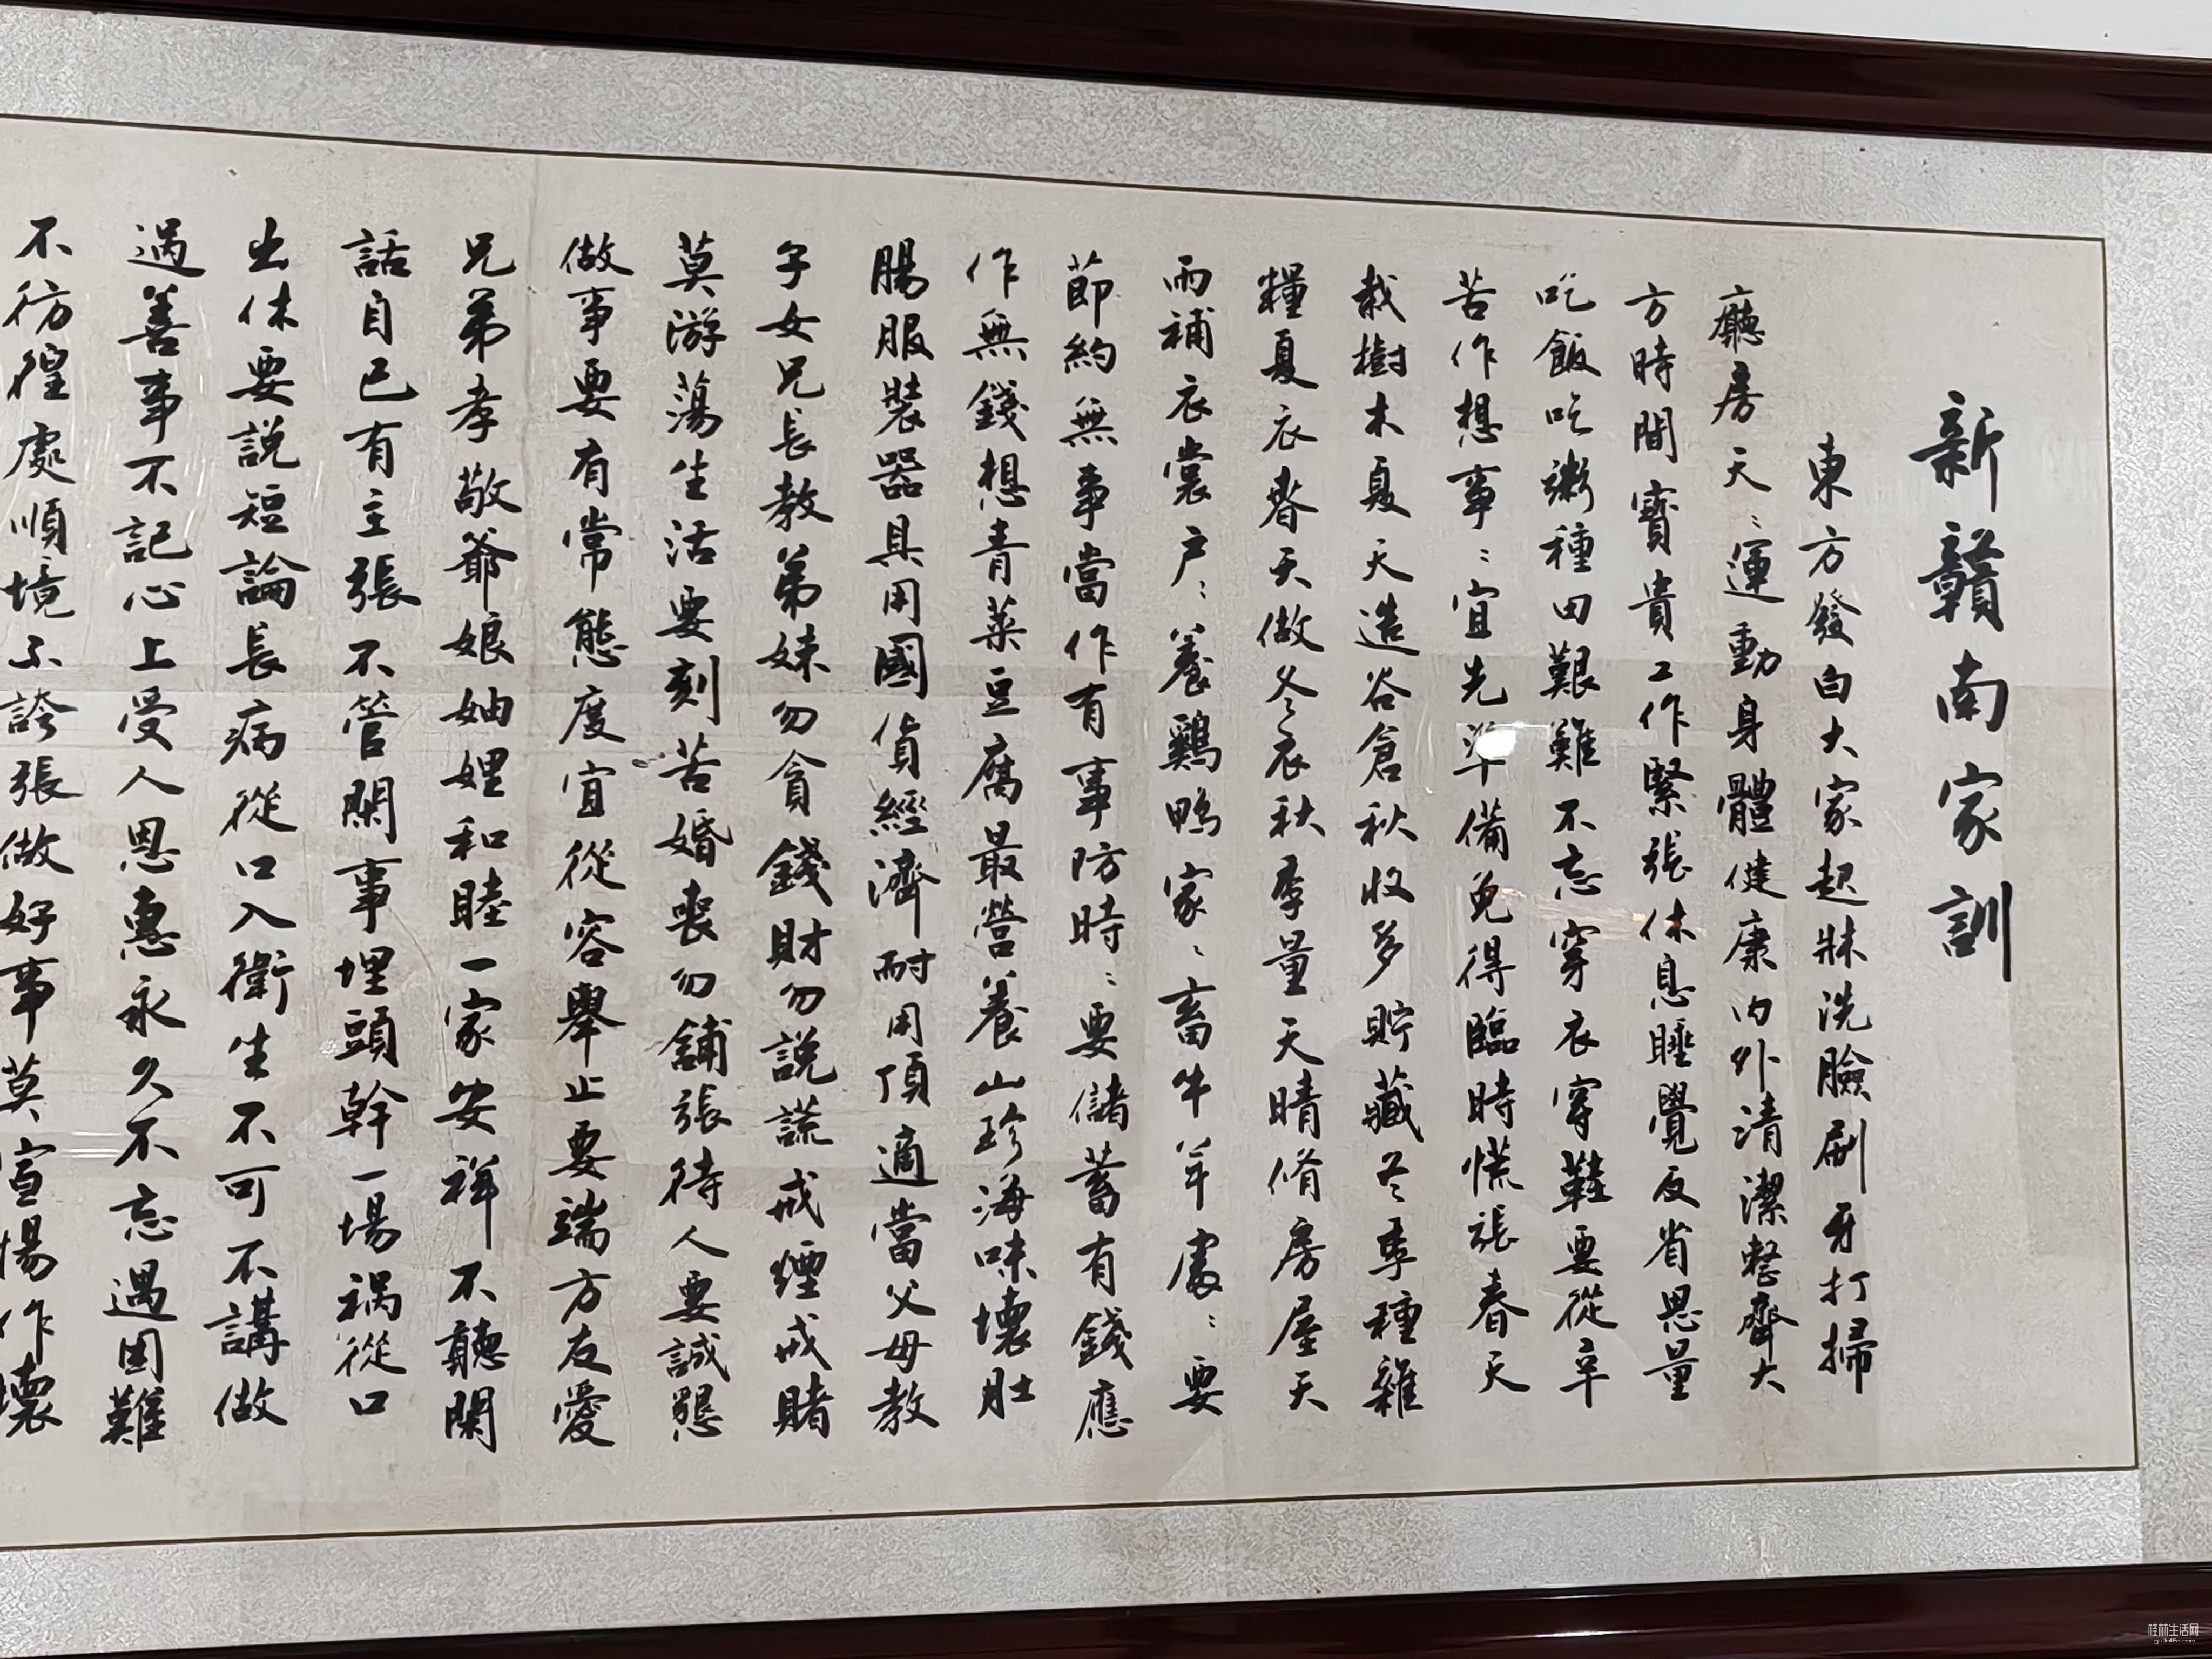 新贛南家訓
東方發白大家起牀洗臉刷牙打掃
廳房天〻運動身體健康內外清潔整齊大
方時間寶貴工作緊張休息睡覺反省思量
吃飯吃粥種田艱難不忘穿衣穿鞋要從辛
苦作想事〻宜先準備免得臨時慌張春天
栽樹木夏天造谷倉秋收多貯藏冬季種雜
糧夏衣春天做冬衣秋季量天晴脩房屋天
雨補衣裳戶〻養鷄鴨家〻畜牛羊處〻要
節約無事當作有事防時〻要儲蓄有錢應
作無錢想青菜豆腐最營養山珍海味壞肚
腸服裝器具用國貨經濟耐用頂適當父母教
子女兄長教弟妹勿貪錢財勿說謊戒煙戒賭
莫游蕩生活要刻苦婚喪勿舖張待人要誠懇
做事要有常態度宜從容舉止要端方友愛
兄弟孝敬爺娘妯娌和睦一家安祥不聽閑
話自己有主張不管閑事埋頭幹一場禍從口
出休要說短論長病從口入衛生不可不講做
過善事不記心上受人恩惠永久不忘遇困難
不彷徨處順境不誇張做好事莫宣揚作壞
桂林生活网
guilinlife.com